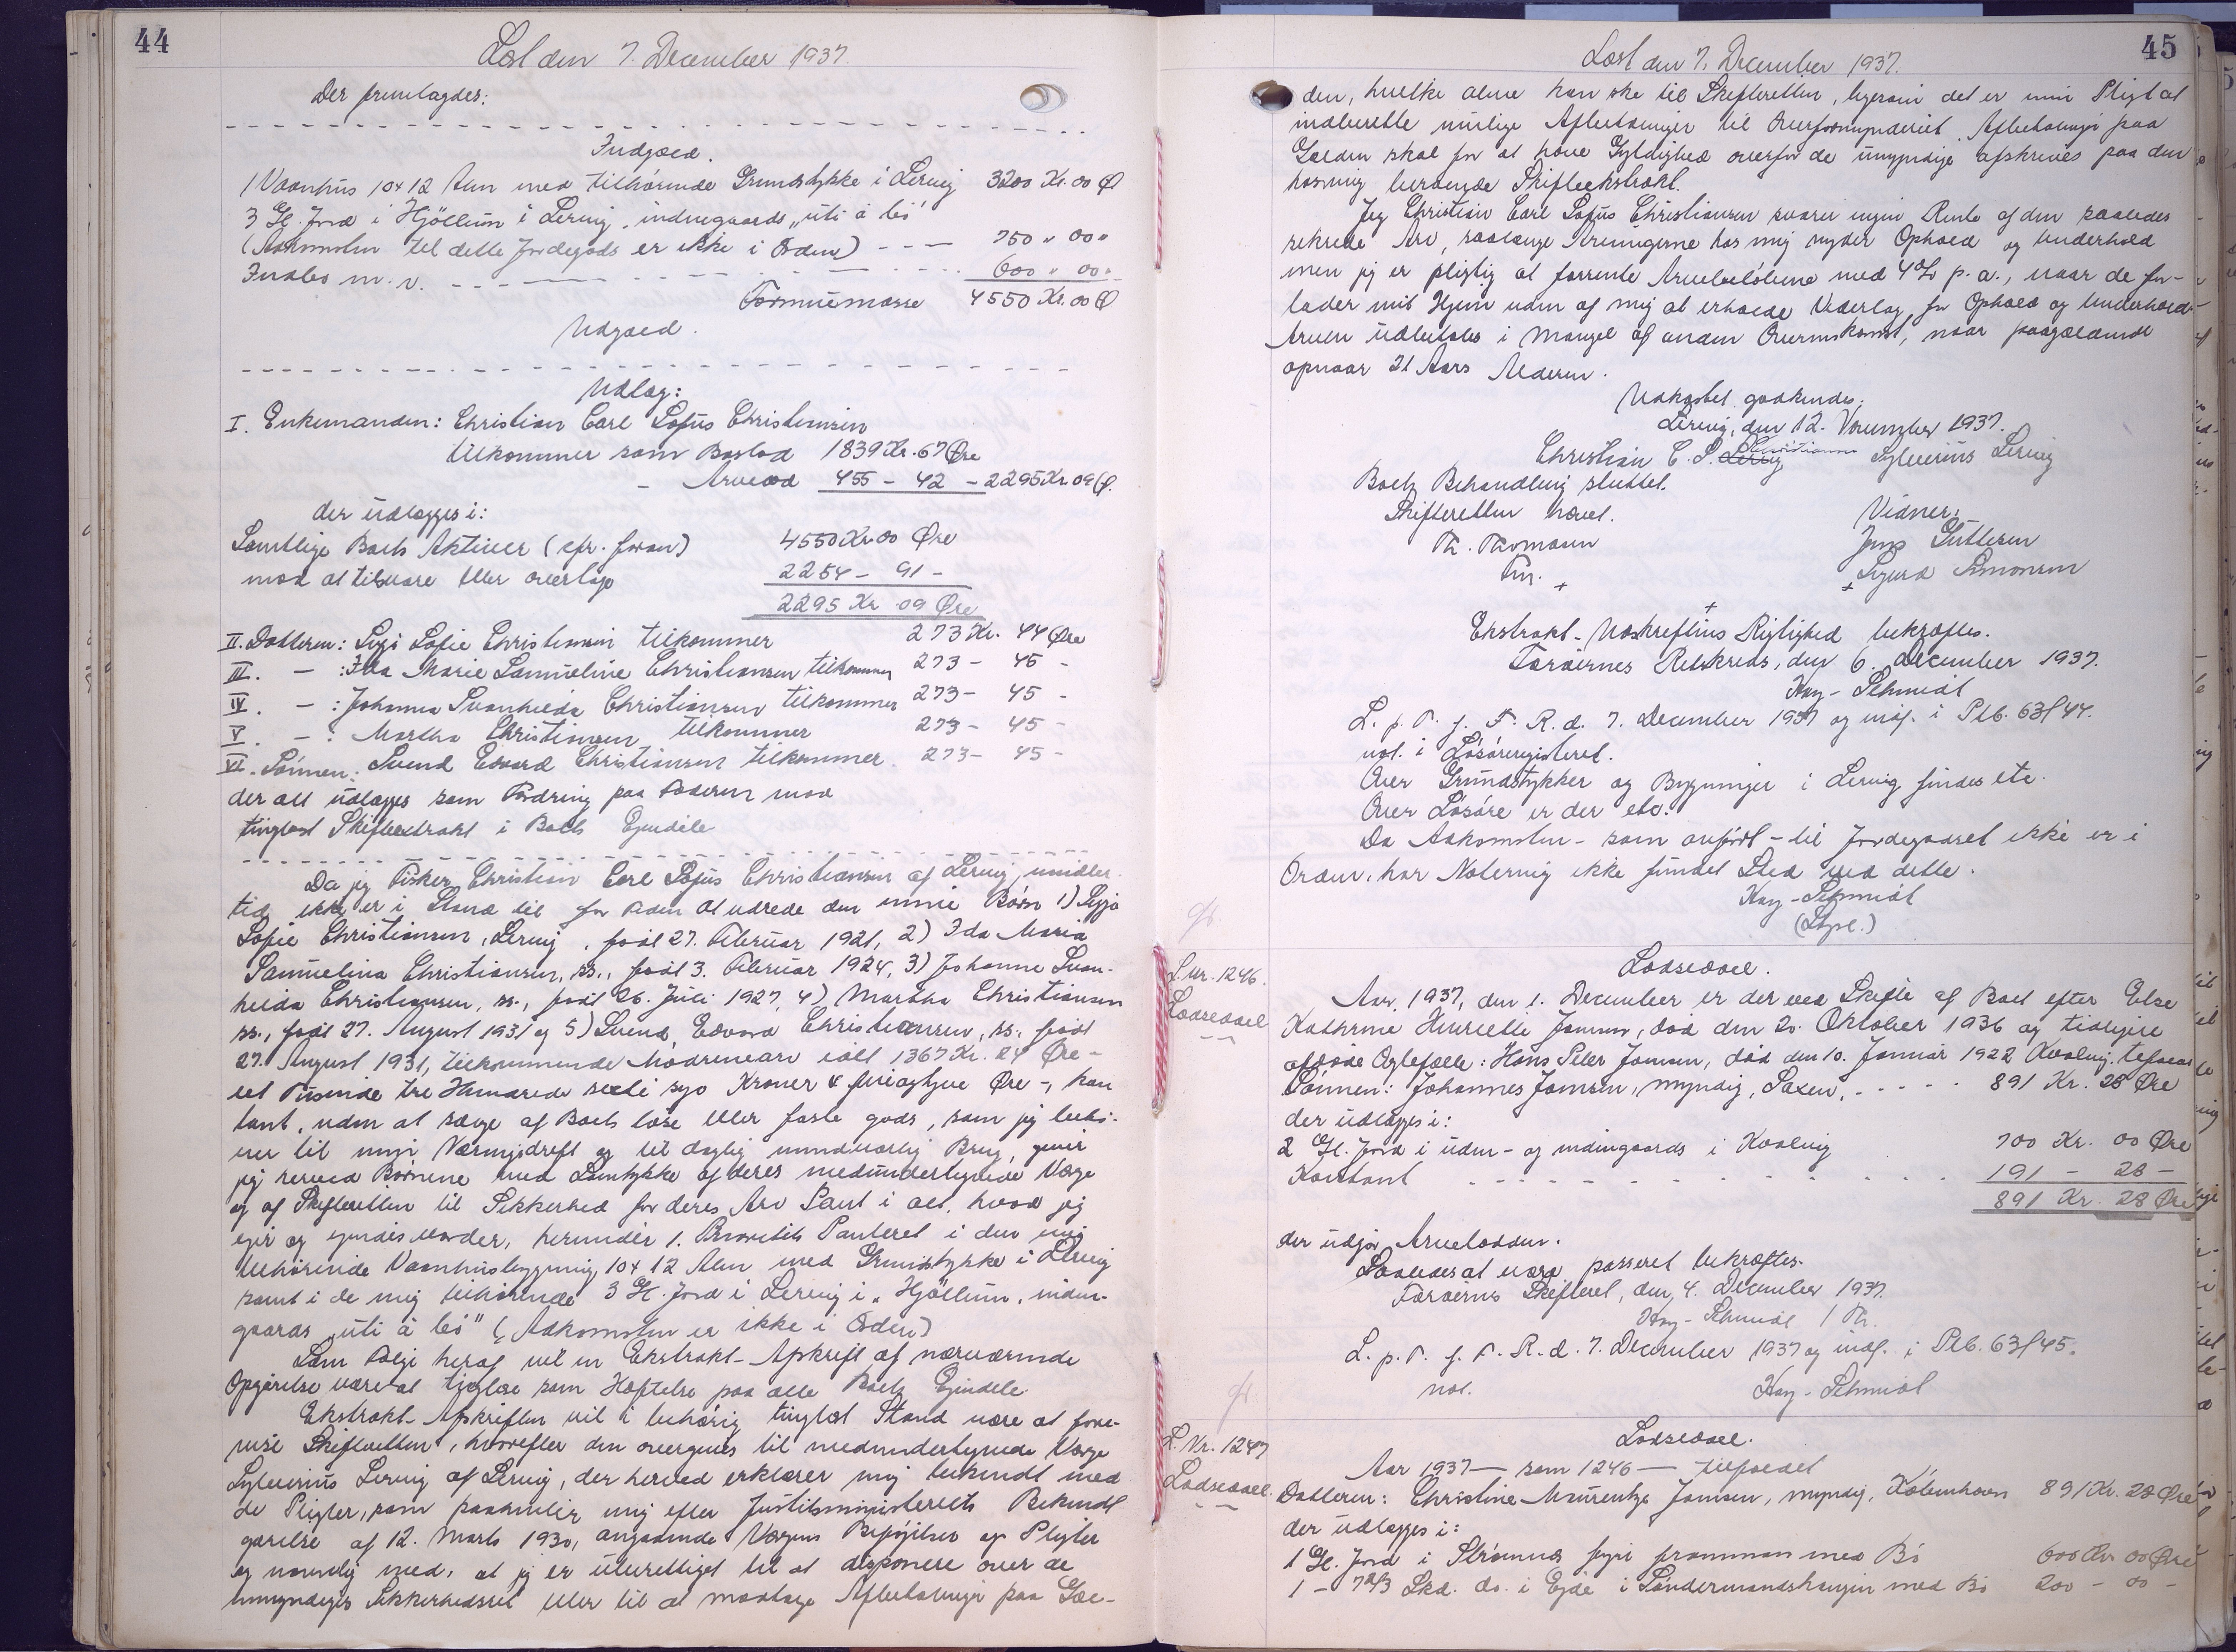 44
Læst den 7. December 1937.
Der fremlagdes:
Indgæld.
1 Vaanhus 10 x 12 Alen med tilhørende Grundstykke i Lervig 3200 Kr. 00 Ø
3 Gl. Jord i Hjöllum i Lervig, indengaards „uti á leó"
(Adkomsten til dette Jordegods er ikke i Orden) --- 750 " 00 "
Indbo m. v. --- 600 " 00 "
Formuemasse 4550 Kr. 00 Ø
Udgæld.
Udlæg:
I. Enkemanden: Christian Carl Sofus Christiansen
tilkommer som Boslod 1839 Kr. 67 Øre
- Arvelod 455 - 42 - 2295 Kr. 09 Ø.
der udlægges i:
Samtlige Boets Aktiver (cfr. foran) 4550 Kr. 00 Øre
mod at tilsvare eller overtage 2254 - 91 -
2295 Kr 09 Øre
II. Datteren: Sigi Sofie Christiansen tilkommer 273 Kr. 44 Øre
III. - : Ida Marie Samueline Christiansen tilkommer 273 - 45 -
IV. - : Johanna Svanhilda Christiansen tilkommer 273 - 45 -
V. - : Martha Christiansen tilkommer 273 - 45 -
VI. Sønnen: Svend Edvard Christiansen tilkommer 273 - 45 -
der alt udlægges som Fordring paa Faderen mod
tinglæst Skifteextrakt i Boets Ejendele
Da jeg Fisker Christian Carl Sofus Christiansen af Lervig, imidler-
tid ikke er i Stand til for Tiden at udrede den mine Børn 1) Sigja
Sofie Christiansen, Lervig, født 27. Februar 1921, 2) Ida Maria
Samuelina Christiansen, ss., født 3. Februar 1924, 3) Johanne Svan-
hilda Christiansen, ss., født 26. Juli 1927, 4) Martha Christiansen
ss., født 27. August 1931 og 5) Svend Edvard Christiansen, ss., født
27. August 1931, tilkommende Mødrenearv ialt 1367 Kr. 24 Øre -
et Tusende tre Hundrede seksti syv Kroner & fireogtyve Øre -, kon
tant, uden at sælge af Boets løse eller faste gods, som jeg behø-
ver til min Næringsdrift og til daglig uundværlig Brug, giver
jeg herved Børnene med Samtykke af deres medundertegnede Værge
og af Skifteretten til Sikkerhed for deres Arv Pant i alt, hvad jeg
ejer og ejendes vorder, herunder 1. Prioritets Panteret i den mig
tilhørende Vaanhusbygning 10 x 12 Alen med Grundstykke i Lervig
samt i de mig tilhørende 3 Gl. Jord i Lervig i „Hjöllum, inden-
gaards „uti á leó" (Adkomsten er ikke i Orden)
Som Følge heraf vil en Ekstrakt-Afskrift af nærværende
Opgørelse være at tinglæse som Hæftelse paa alle Boets Ejendele.
Ekstrakt-Afskriften vil i behørig tinglæst Stand være at fore-
vise Skifteretten, hvorefter den overgives til medundertegnede Værge
Sylverius Lervig af Lervig, der herved erklærer mig bekendt med
de Pligter, som paahviler mig efter Justitsministeriets Bekendt
gørelse af 12. Marts 1930, angaaende Værgens Beføjelser og Pligter
og navnlig med, at jeg er uberettiget til at disponere over de
umyndiges Sikkerhedsret eller til at modtage Afbetalinger paa Gæl-
45
Læst den 7. December 1937.
den, hvilke alene kan ske til Skifteretten, ligesom det er min Pligt at
indberette mulige Afbetalinger til Overformynderiet. Afbetalinger paa
Gælden skal for at have Gyldighed overfor de umyndige afskrives paa den
hosmig beroende Skifteekstrakt.
Jeg Christian Carl Sofus Christiansen svarer ingen Rente af den saaledes
sikrede Arv, saalænge Arvingerne hos mig nyder Ophold og Underhold
men jeg er pligtig at forrente Arvebeløbene med 4% p. a., naar de for-
lader mit Hjem uden af mig at erholde Vederlag for Ophold og Underhold.
Arven udbetales i Mangel af anden Overenskomst, naar paagældende
opnaar 21 Aars Alderen.
Udkastet godkendes.
Lervig, den 12. November 1937.
Christian C. S. Christiansen Sylverius Lervig
Boets Behandling sluttet.
Skifteretten hævet. Vidner:
Th. Thomsen Jens Gutteren
Fm. + + Sigurd Simonsen
+
Ekstrakt-Udskriftens Rigtighed bekræftes.
Færøernes Retskreds, den 6. December 1937.
Kay-Schmidt
L. p. T. f. F. R. d. 7. December 1937 og indf. i Ptb. 63f 44.
not. i Løsøreregisteret.
Over Grundstykker og Bygninger i Lervig findes etc.
Over Løsøre er der etc.
Da Adkomsten - som anført - til Jordegodset ikke er i
Orden, har Notering ikke fundet Sted ved dette.
Kay-Schmidt
(Sgsl.)
L. nr. 1246.
Lodseddel
Lodseddel.
Aar 1937, den 1. December er der ved Skifte af Boet efter Else
Kathrine Henriette Joensen, død den 20. Oktober 1936 og tidligere
afdøde Ægtefælle: Hans Peter Joensen, død den 10. Januar 1922 Kvalvig, tilfaldet
Sønnen: Johannes Joensen, myndig, Saxen, ---- 891 Kr. 28 Øre
der udlægges i:
2 Gl. Jord i uden- og indengaards i Kvalvig 700 Kr. 00 Øre
Kontant --- 191 - 28 -
891 Kr. 28 Øre
der udgør Arvelodden.
Saaledes at være passeret bekræftes.
Færøernes Skifteret, den 4. December 1937.
Kay-Schmidt / Th.
L. p. T. f. F. R. d. 7. December 1937 og indf. i Ptb. 63f 45.
not. Kay-Schmidt
L. Nr. 1247
Lodseddel.
Lodseddel.
Aar 1937 — som 1246 — tilfaldet
Datteren: Christine Maurentze Joensen, myndig, København 891 Kr. 28 Øre
der udlægges i:
1 Gl. Jord i Strømnæs fyri framman med Bó 600 Kr 00 Øre
1 - 7 2/3 Skd. do. i Ejde i Søndermandshaugen med Bó 200 - 00 -